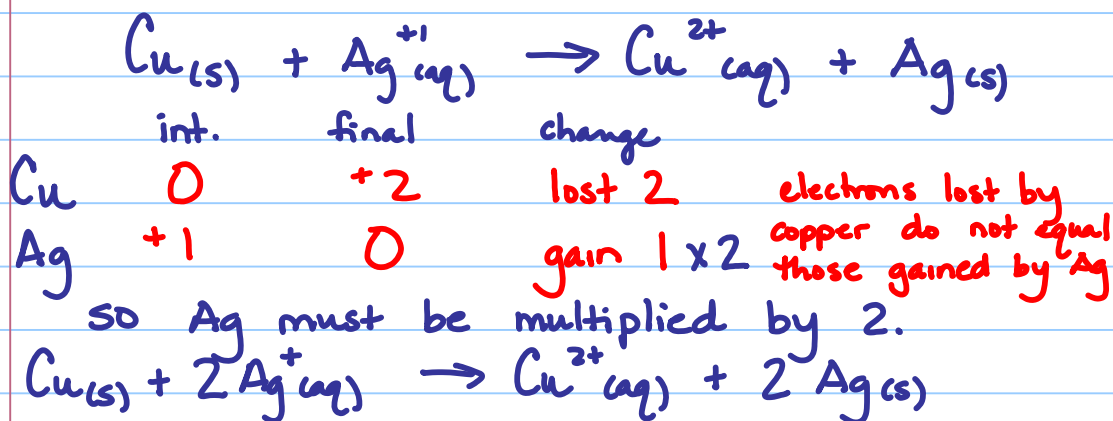 Cu(s) + Ag⁺¹(aq) → Cu²⁺(aq) + Ag(s)
int. final change
Cu 0 +2 lost 2 electrons lost by
copper do not equal
Ag +1 0 gain 1 x2 those gained by Ag
so Ag must be multiplied by 2.
Cu(s) + 2Ag⁺(aq) → Cu²⁺(aq) + 2Ag(s)